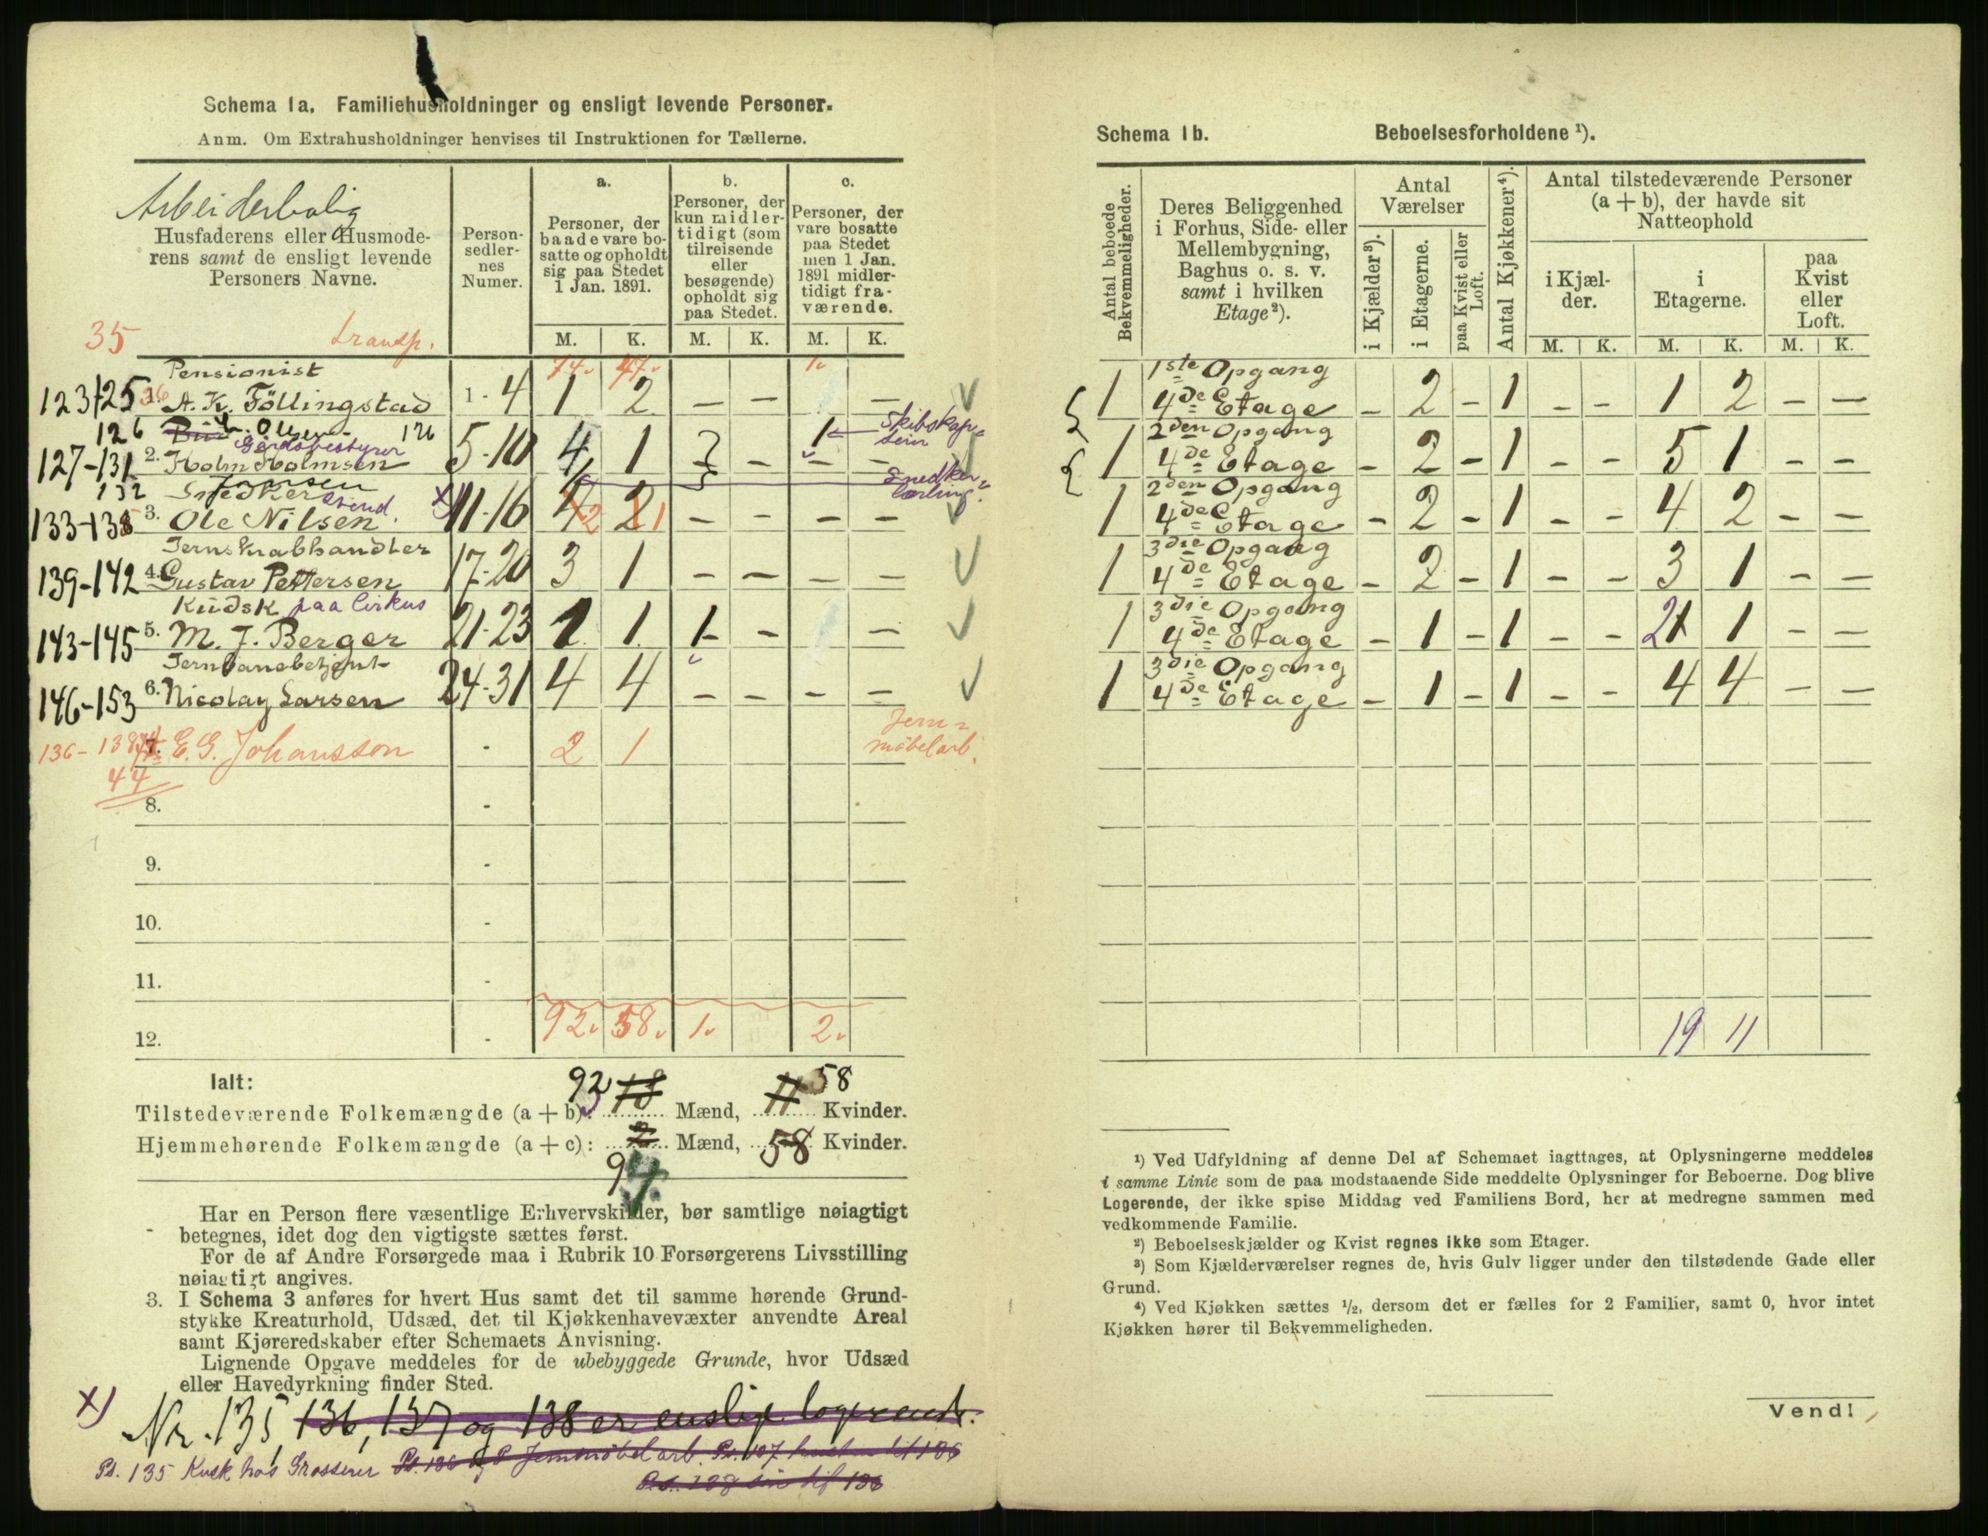 Schema 1a. Familiehusholdninger og ensligt levende Personer.
Anm. Om Extrahusholdninger henvises til Instruktionen for Tællerne.
Arbeiderbolig
Husfaderens eller Husmode-
rens samt de ensligt levende
Personers Navne.
Person-
sedler-
nes
Numer.
a.
Personer, der
baade vare bo-
satte og opholdt
sig paa Stedet
1 Jan. 1891.
b.
Personer, der
kun midler-
tidigt (som
tilreisende
eller
besøgende)
opholdt sig
paa Stedet.
c.
Personer, der
vare bosatte
paa Stedet
men 1 Jan.
1891 midler-
tidigt fra-
værende.
M. K. M. K. M. K.
35 transp. 74. 47. 1.
Pensionist
123-125 1. A. K. Föllingstad 1-4 1 2 – – –
126 Olsen 126 1 Skibskap-
tein
Gårdsbestyrer
127-131 2. Holm Holmsen 5-10 4 1 – – –
132 Jensen Snedker-
lærling.
Snedkersvend.
133-135 3. Ole Nilsen x) 11-16 4 2 2 1 – – – –
Jernskrabhandler
139-142 4. Gustav Pettersen 17-20 3 1 – – – –
Kudsk paa Cirkus
143-145 5. M. J. Berger 21-23 1 1 1 – –
Jernbanebetjent
146-153 6. Nicolay Larsen 24-31 4 4 – – – –
136-138 7. E. G. Johansson - 2 1 Jern-
møbelarb.
44
8. -
9. -
10. -
11. -
92. 58. 1. 2.
12. -
Ialt:
Tilstedeværende Folkemængde (a + b): 92 18 Mænd, 11 58 Kvinder.
Hjemmehørende Folkemængde (a + c): 2 Mænd, 58 Kvinder.
94
Har en Person flere væsentlige Erhvervskilder, bør samtlige nøiagtigt
betegnes, idet dog den vigtigste sættes først.
For de af Andre Forsørgede maa i Rubrik 10 Forsørgerens Livsstilling
nøiagtigt angives.
3. I Schema 3 anføres for hvert Hus samt det til samme hørende Grund-
stykke Kreaturhold, Udsæd, det til Kjøkkenhavevæxter anvendte Areal
samt Kjøreredskaber efter Schemaets Anvisning.
Lignende Opgave meddeles for de ubebyggede Grunde, hvor Udsæd
eller Havedyrkning finder Sted.
x) Nr. 135, 136, 137 og 138 er enslige logerende.
Ps. 135 Kusk hos Grosserer Ps. 136 Jernmøbelarb. Ps. 137 hustru til 136
Ps. 138 søn til 136
Schema 1b. Beboelsesforholdene ¹).
Antal beboede
Bekvemmeligheder.
Deres Beliggenhed
i Forhus, Side- eller
Mellembygning,
Baghus o. s. v.
samt i hvilken
Etage ²).
Antal
Værelser
i Kjælder ³).
i Etagerne.
paa Kvist eller
Loft.
Antal Kjøkkener ⁴).
Antal tilstedeværende Personer
(a + b), der havde sit
Natteophold
i Kjæl-
der.
i
Etagerne.
paa
Kvist
eller
Loft.
M. K. M. K. M. K.
1ste Opgang
1 4de Etage – 2 – 1 – – 1 2 – –
2den Opgang
1 4de Etage – 2 – 1 – – 5 1 – –
2den Opgang
1 4de Etage – 2 – 1 – – 4 2 – –
3die Opgang
1 4de Etage – 2 – 1 – – 3 1 – –
3die Opgang
1 4de Etage – 1 – 1 – – 2 1 – –
3die Opgang
1 4de Etage – 1 – 1 – – 4 4 – –
19 11
¹) Ved Udfyldning af denne Del af Schemaet iagttages, at Oplysningerne meddeles
i samme Linie som de paa modstaaende Side meddelte Oplysninger for Beboerne. Dog blive
Logerende, der ikke spise Middag ved Familiens Bord, her at medregne sammen med
vedkommende Familie.
²) Beboelseskjælder og Kvist regnes ikke som Etager.
³) Som Kjælderværelser regnes de, hvis Gulv ligger under den tilstødende Gade eller
Grund.
⁴) Ved Kjøkken sættes ¹/₂, dersom det er fælles for 2 Familier, samt 0, hvor intet
Kjøkken hører til Bekvemmeligheden.
Vend!